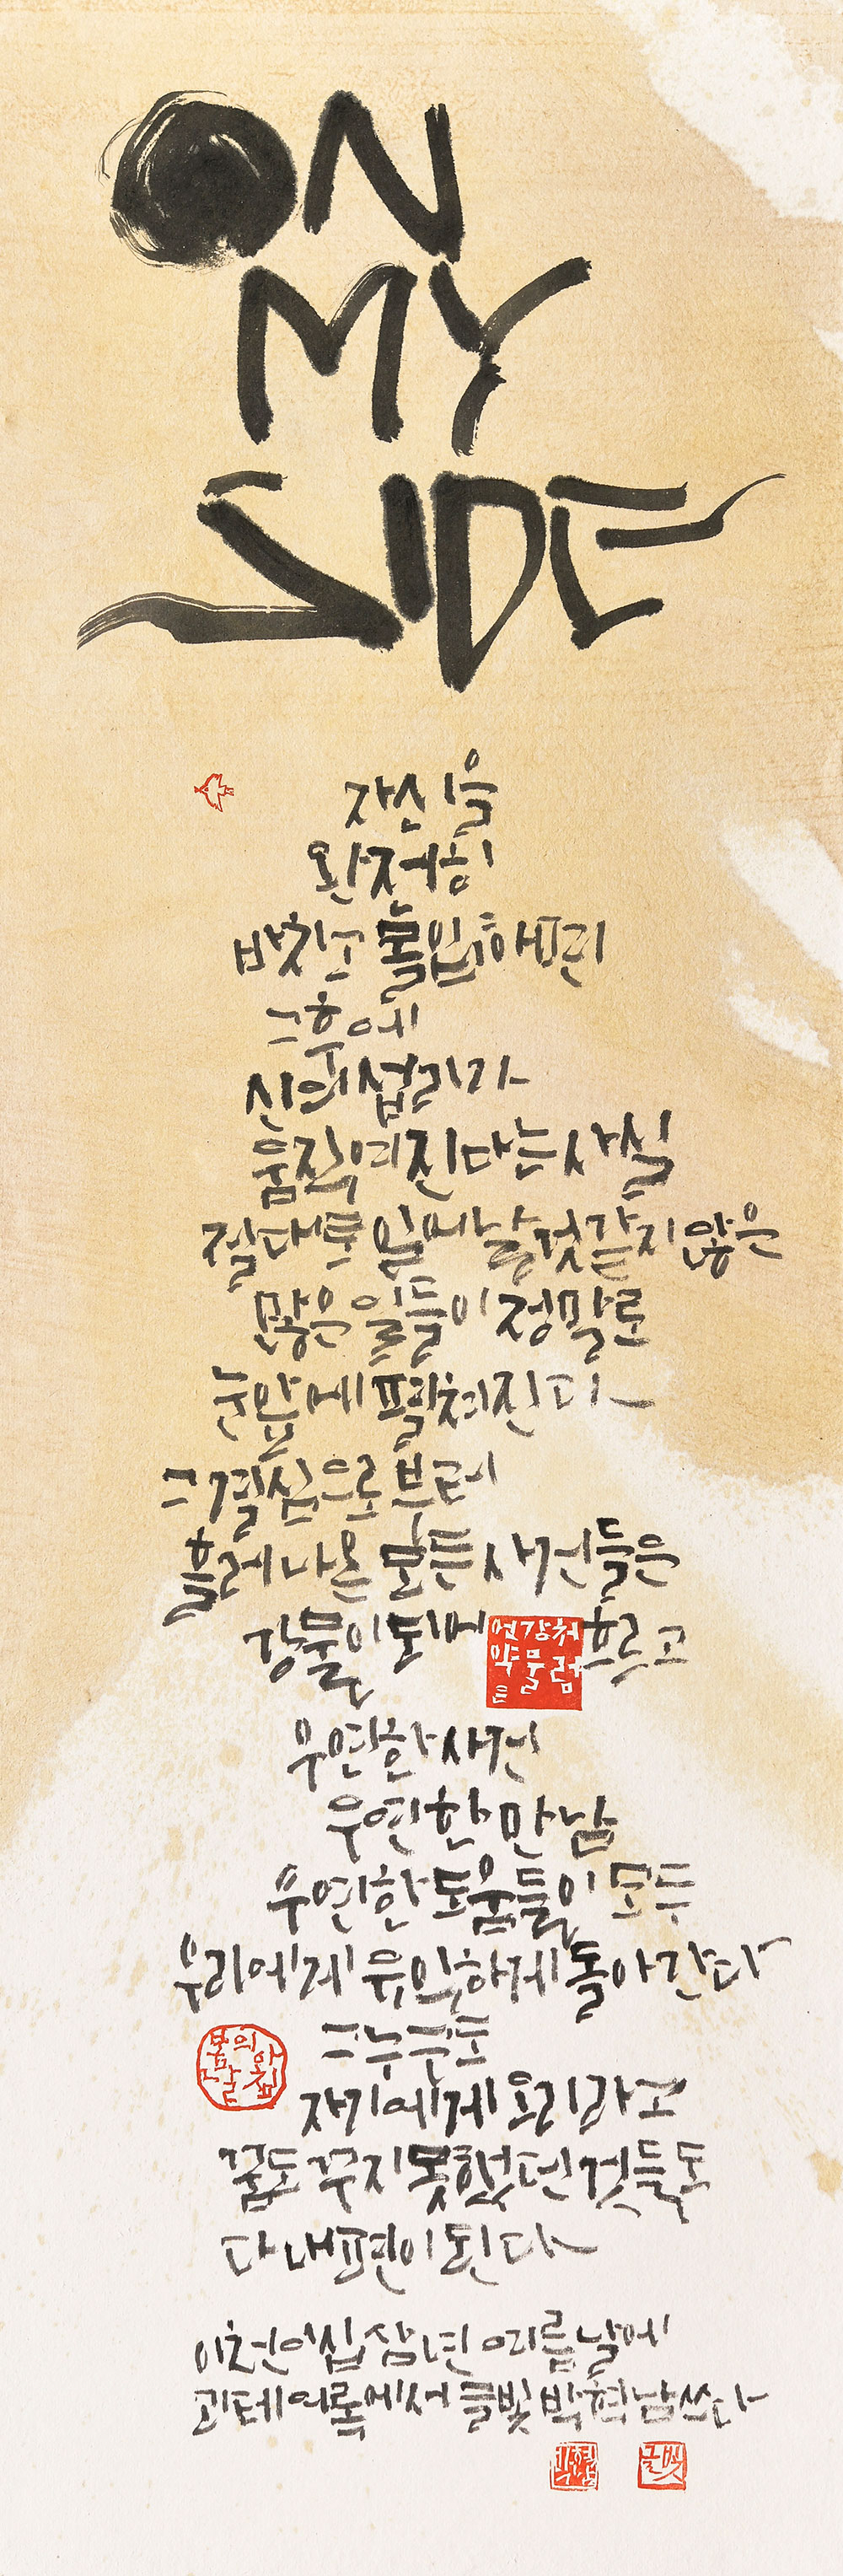 ON
MY
SIDE
자신을
완전히
바치고 몰입해 버린
그 후에
신의 섭리가
움직여진다는 사실
절대로 일어날 것 같지 않은
많은 일들이 정말로
눈앞에 펼쳐진다
그 결심으로부터
흘러나온 모든 사건들은
강물이 되어 흐르고
우연한 사건
우연한 만남
우연한 도움들이 모두
우리에게 유익하게 돌아간다
그 누구도
자기에게 오리라고
꿈도 꾸지 못했던 것들도
다 내 편이 된다
이천이십삼년 여름날에
괴테어록에서 글빛 박현남 쓰다
글빛